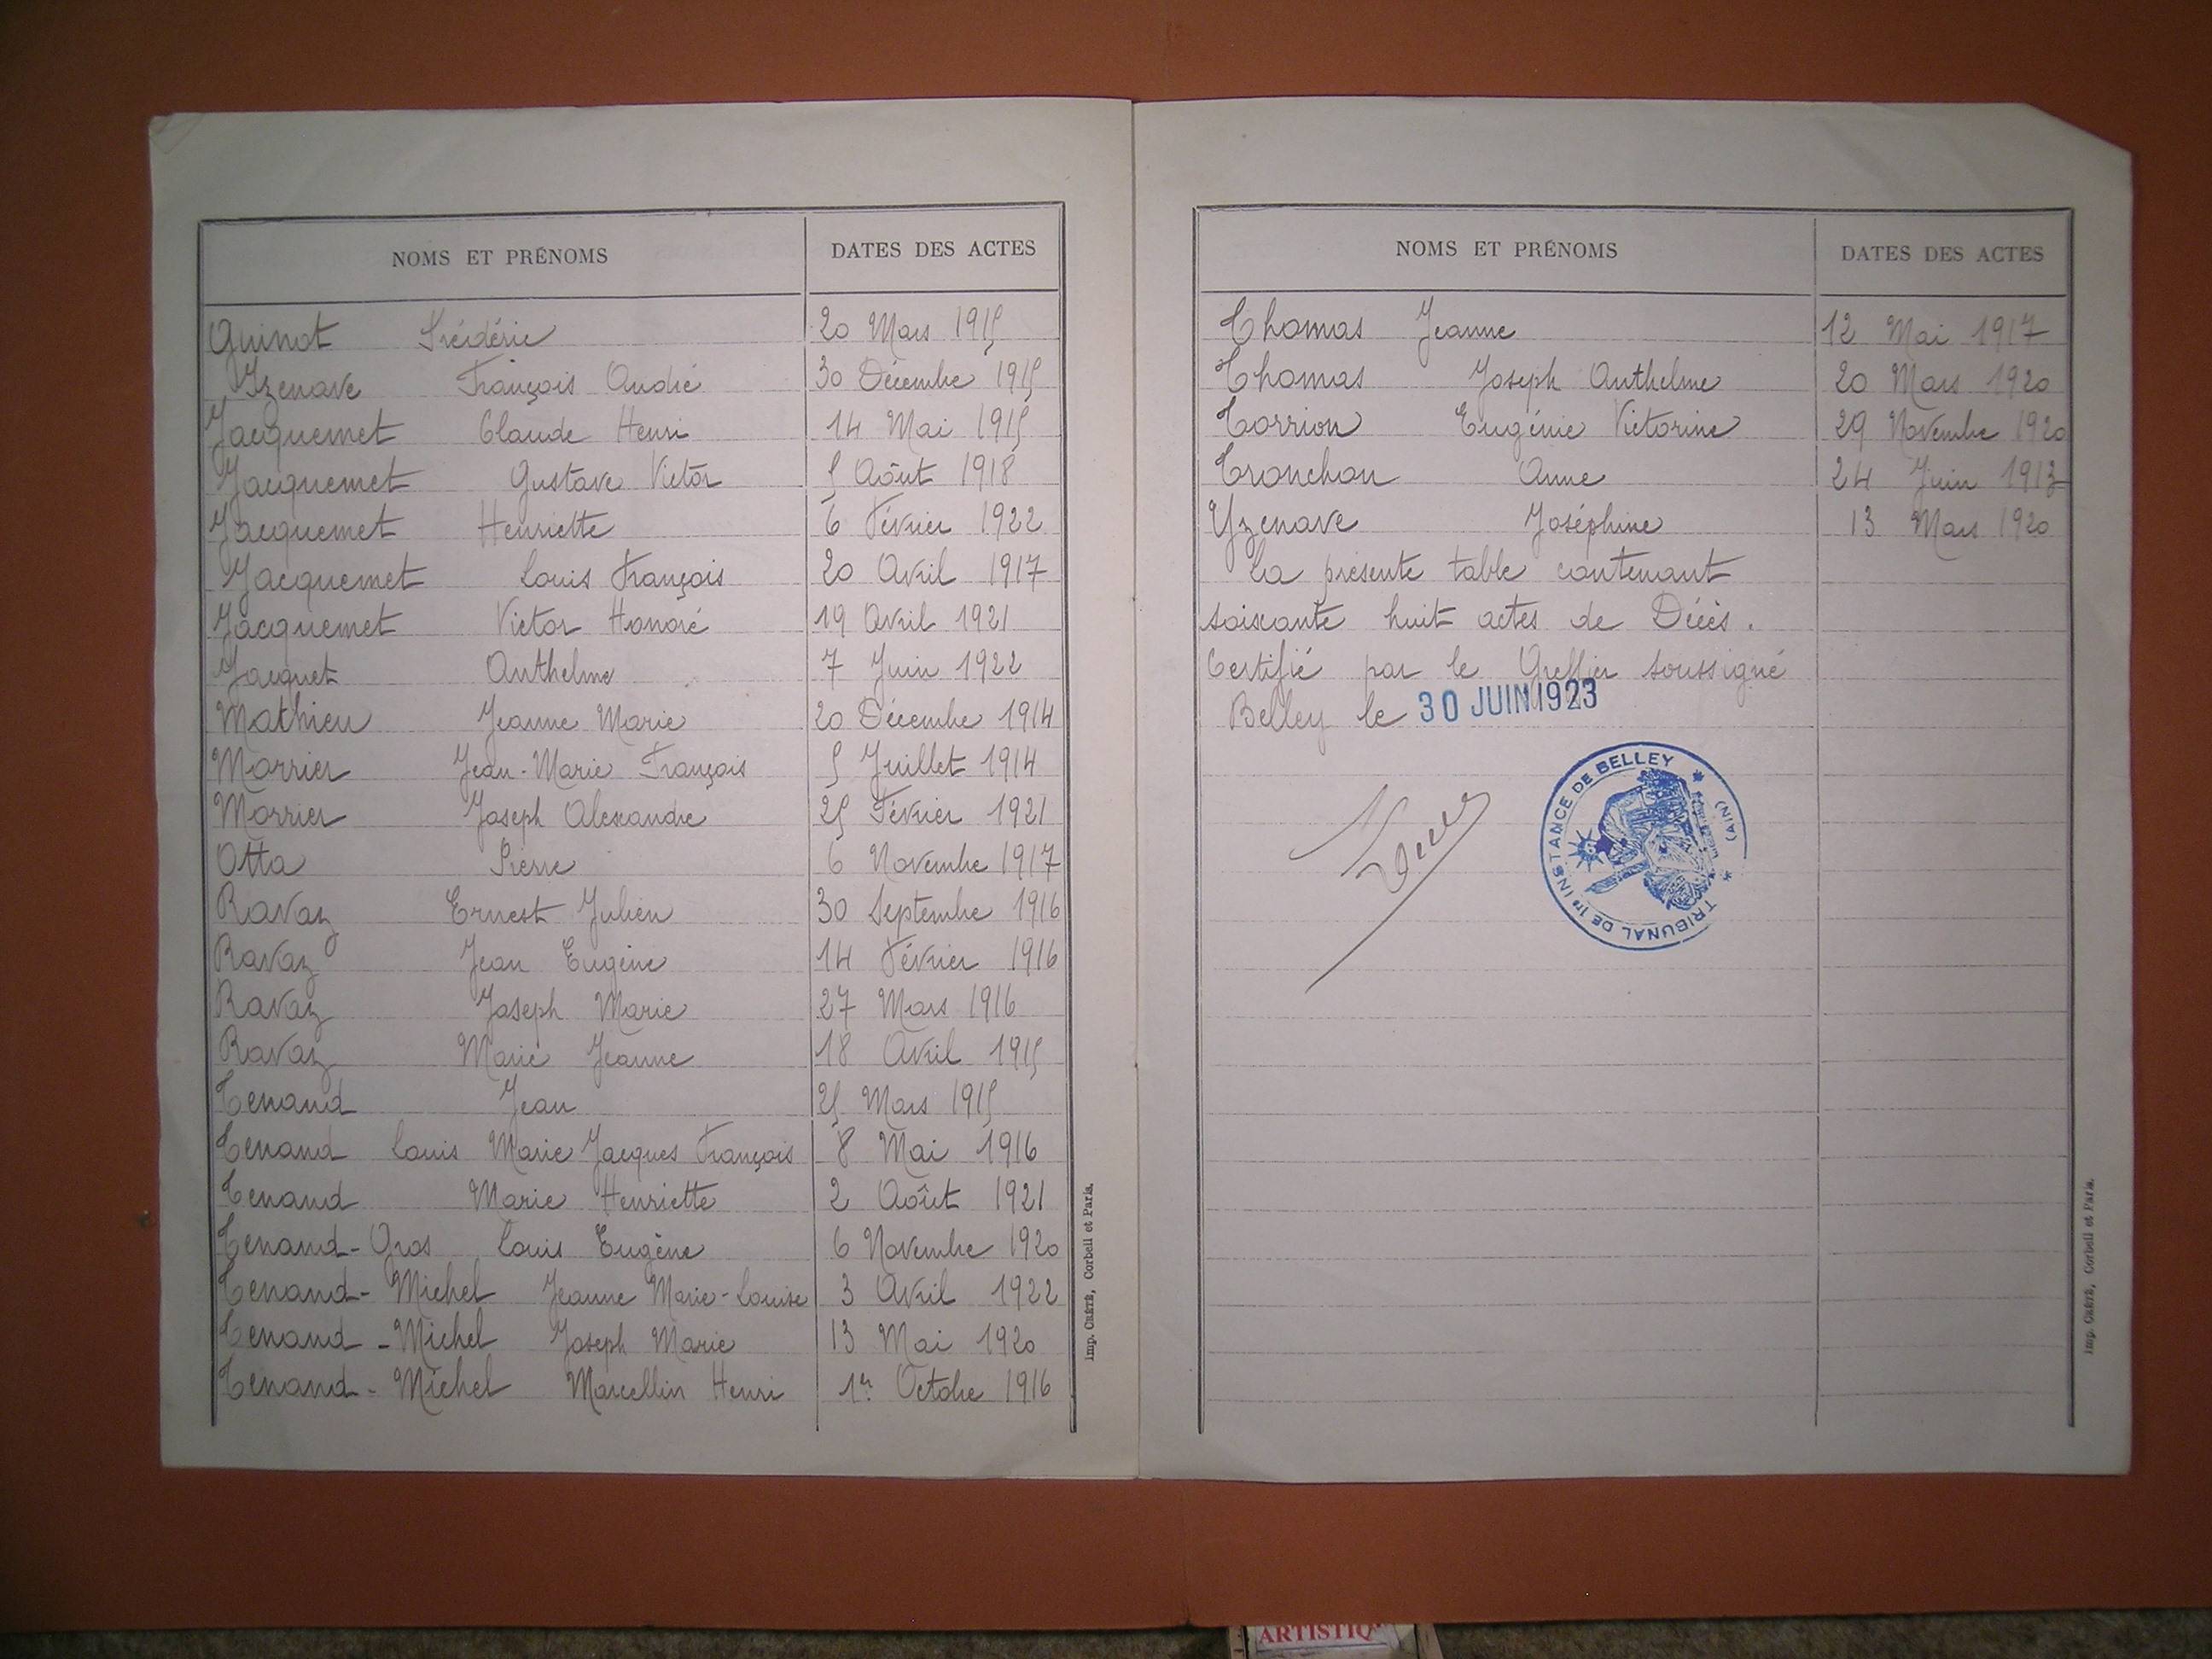 NOMS ET PRÉNOMS DATES DES ACTES
Guinot Frédéric 20 Mars 1915
Yzenave François André 30 Décembre 1915
Jacquemet Claude Henri 14 Mai 1915
Jacquemet Gustave Victor 5 Aôut 1918
Jacquemet Henriette 6 Février 1922
Jacquemet Louis François 20 Avril 1917
Jacquemet Victor Honoré 19 Avril 1921
Jacquet Anthelme 7 Juin 1922
Mathieu Jeanne Marie 20 Décembre 1914
Morrier Jean-Marie François 5 Juillet 1914
Morrier Joseph Alexandre 25 Février 1921
Otta Pierre 6 Novembre 1917
Ravaz Ernest Julien 30 Septembre 1916
Ravaz Jean Eugène 14 Février 1916
Ravaz Joseph Marie 27 Mars 1916
Ravaz Marie Jeanne 18 Avril 1915
Tenand Jean 25 Mars 1915
Tenand Louis Marie Jacques François 8 Mai 1916
Tenand Marie Henriette 2 Août 1921
Tenand-Gros Louis Eugène 6 Novembre 1920
Tenand-Michel Jeanne Marie-Louise 3 Avril 1922
Tenand-Michel Joseph Marie 13 Mai 1920
Tenand-Michel Marcellin Henri 1er Octobre 1916
Imp. CRÉTÉ, Corbeil et Paris.
NOMS ET PRÉNOMS DATES DES ACTES
Thomas Jeanne 12 Mai 1917
Thomas Joseph Anthelme 20 Mars 1920
Torrion Eugénie Victorine 29 Novembre 1920
Tronchon Anne 24 Juin 1913
Yzenave Joséphine 13 Mars 1920
La présente table contenant
soixante huit actes de Décès.
Certifié par le Greffier soussigné
Belley le 30 JUIN 1923
TRIBUNAL DE 1re INSTANCE DE BELLEY
(AIN)
Imp. CRÉTÉ, Corbeil et Paris.
ARTISTIQ